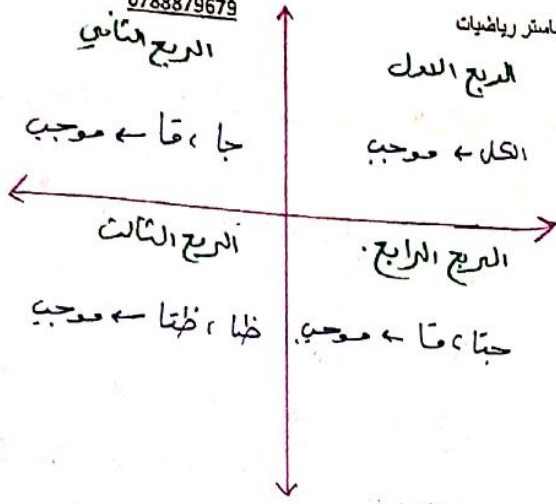 0788879679
ماستر رياضيات
الربع الاول
الكل ← موجب
الربع الثاني
جا ، قا ← موجب
الربع الثالث
ظا ، ظتا ← موجب
الربع الرابع .
جتا ، قا ← موجب